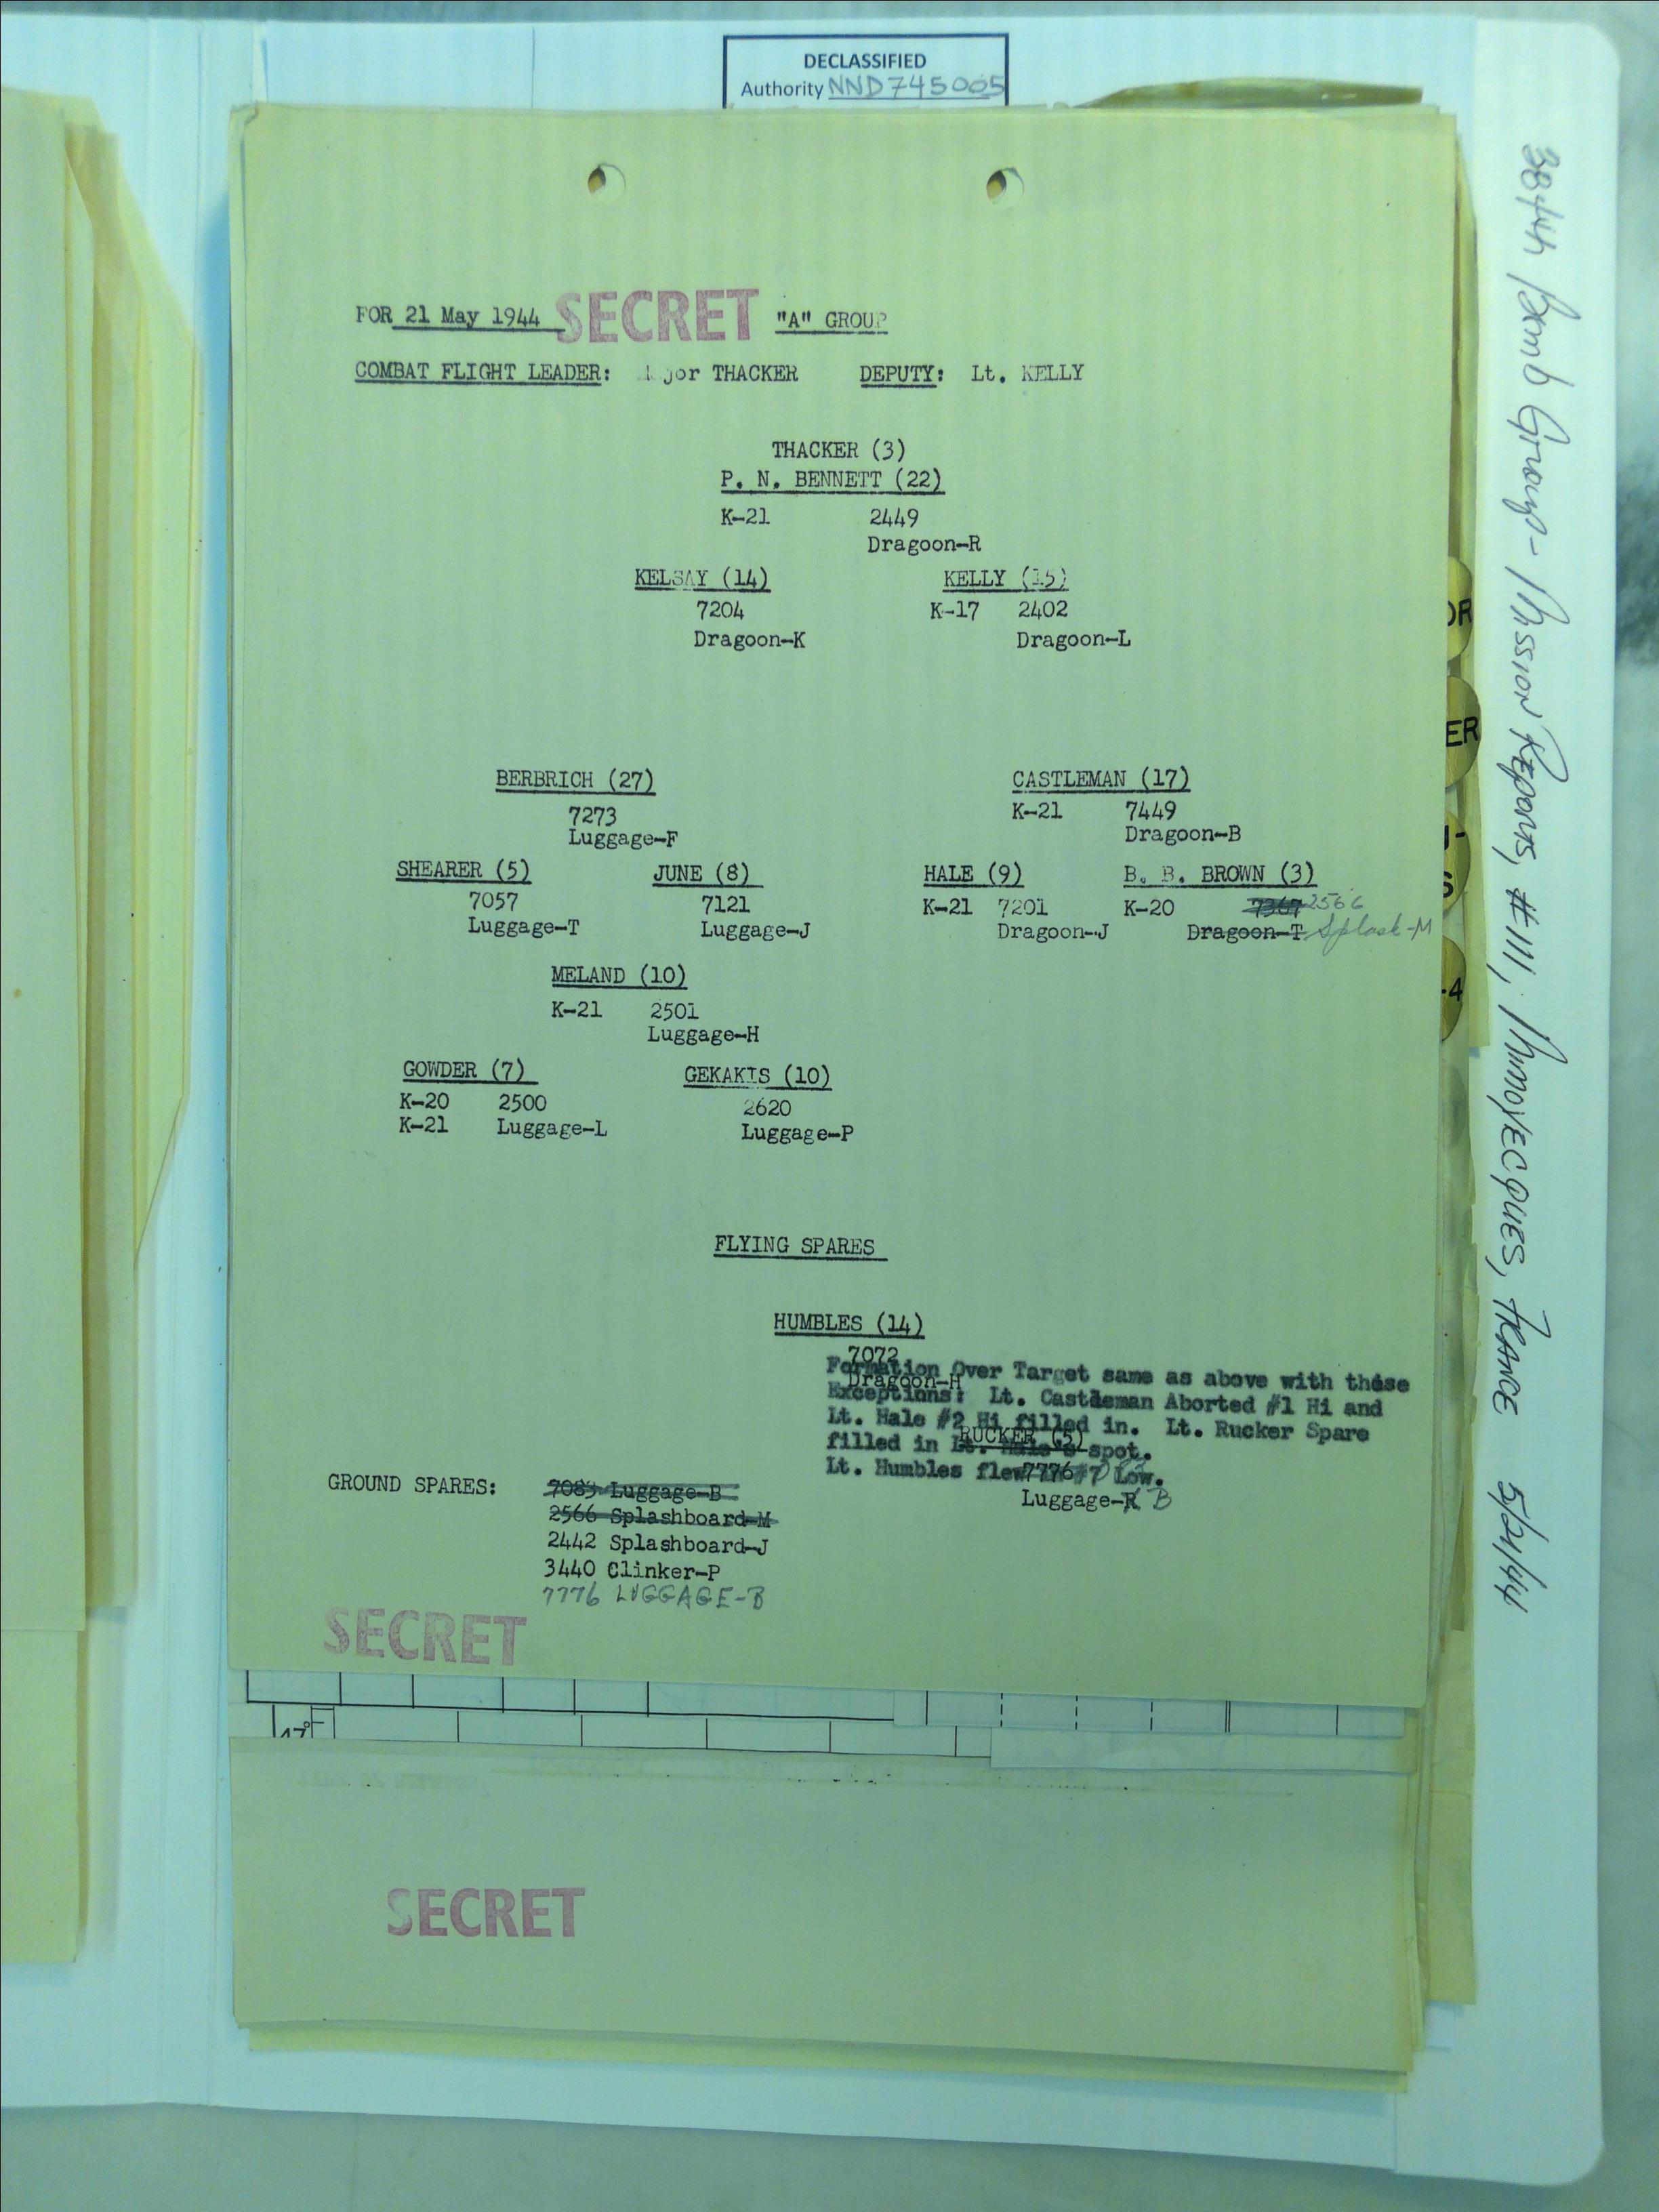 DECLASSIFIED
Authority NND745005
FOR 21 May 1944 SECRET "A" GROUP
COMBAT FLIGHT LEADER: Major THACKER DEPUTY: Lt. KELLY
THACKER (3)
P. N. BENNETT (22)
K-21 2449
Dragoon-R
KELSAY (14) KELLY (15)
7204 K-17 2402
Dragoon-K Dragoon-L
BERBRICH (27) CASTLEMAN (17)
7273 K-21 7449
Luggage-F Dragoon-B
SHEARER (5) JUNE (8) HALE (9) B. B. BROWN (3)
7057 7121 K-21 7201 K-20 7367 2566
Luggage-T Luggage-J Dragoon-J Dragoon-T Splash-M
MELAND (10)
K-21 2501
Luggage-H
GOWDER (7) GEKAKIS (10)
K-20 2500 2620
K-21 Luggage-L Luggage-P
FLYING SPARES
HUMBLES (14)
7072
Dragoon-H
Formation Over Target same as above with these
Exceptions: Lt. Castleman Aborted #1 Hi and
Lt. Hale #2 Hi filled in. Lt. Rucker Spare
filled in Lt. Hale's spot.
Lt. Humbles flew #7 Low.
RUCKER (5)
7776
Luggage-R B
GROUND SPARES: 7083 Luggage-B
2566 Splashboard-M
2442 Splashboard-J
3440 Clinker-P
7776 LUGGAGE-B
SECRET
SECRET
384th Bomb Group - Mission Reports, #111, MimoyECQUES, FRANCE 5/21/44
OR
ER
-4